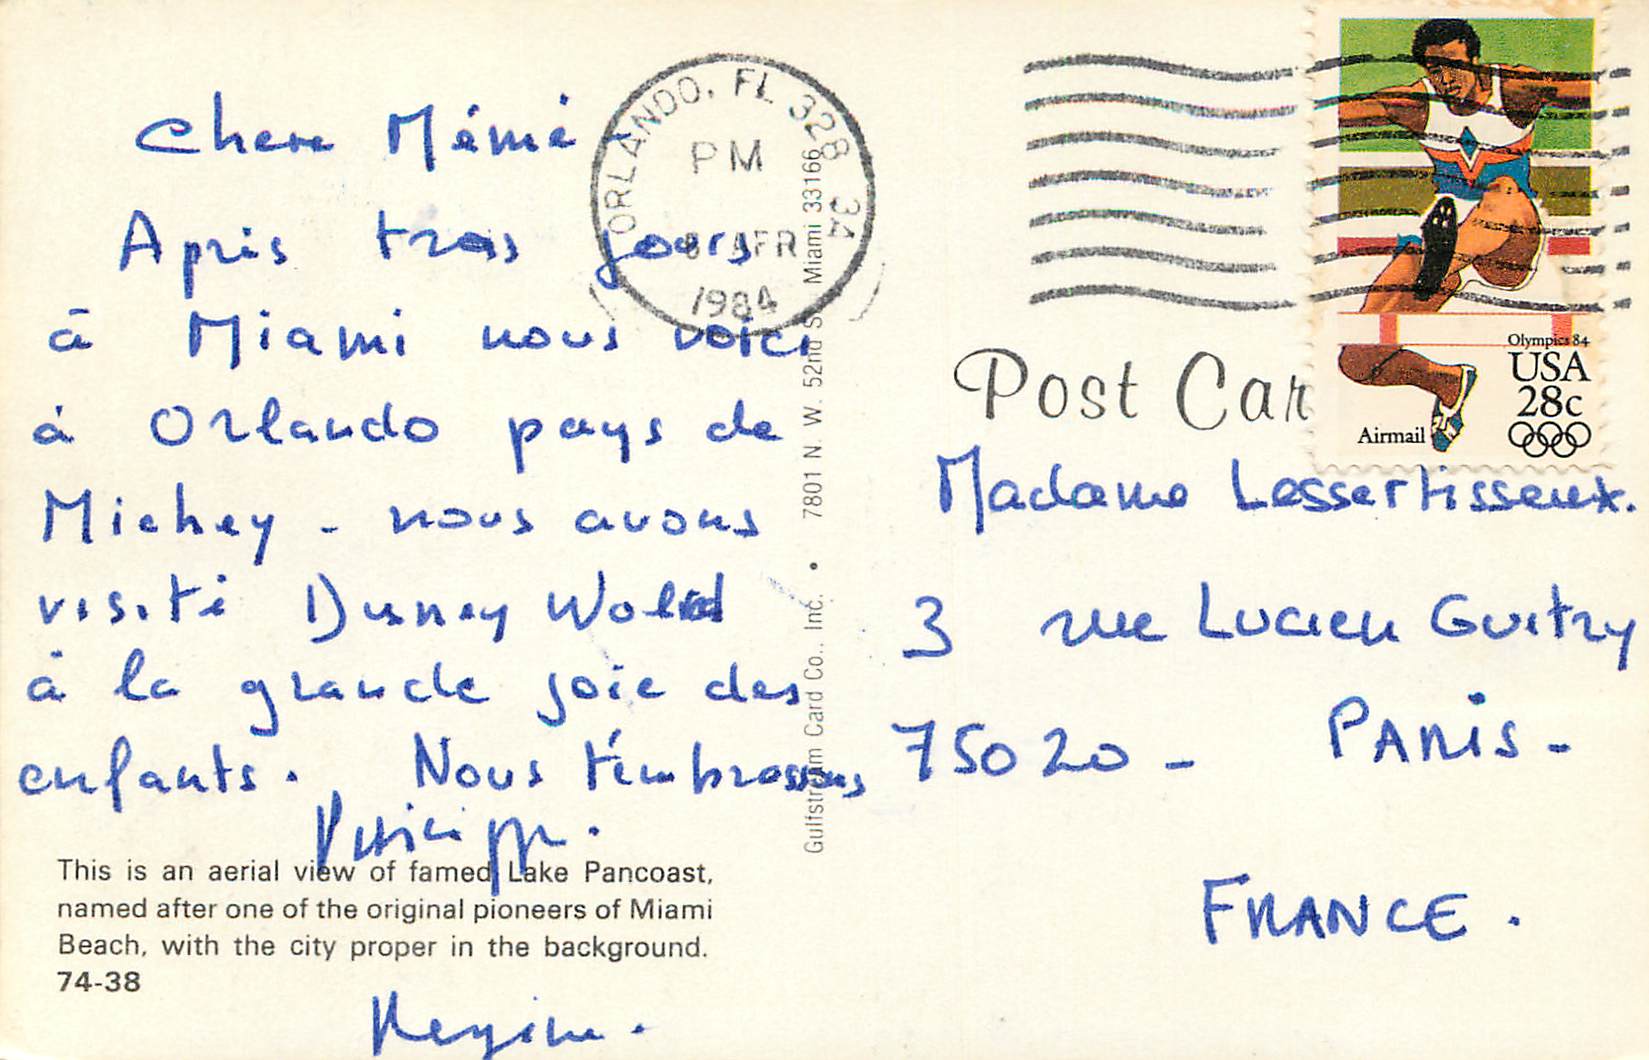 Chere Mémé
Après trois jours
à Miami nous voici
à Orlando pays de
Mickey - nous avons
visité Disney Wolrd
à la grande joie des
enfants. Nous t'embrassons
Philippe.
This is an aerial view of famed Lake Pancoast,
named after one of the original pioneers of Miami
Beach, with the city proper in the background.
74-38
Regine.
ORLANDO, FL 328
PM
APR
1984
Gulfstream Card Co., Inc. • 7801 N. W. 52nd St. Miami 33166
Post Car
Olympics 84
USA
28c
Airmail
Madame Lessertisseux.
3 rue Lucien Guitry
75020 - PARIS -
FRANCE.